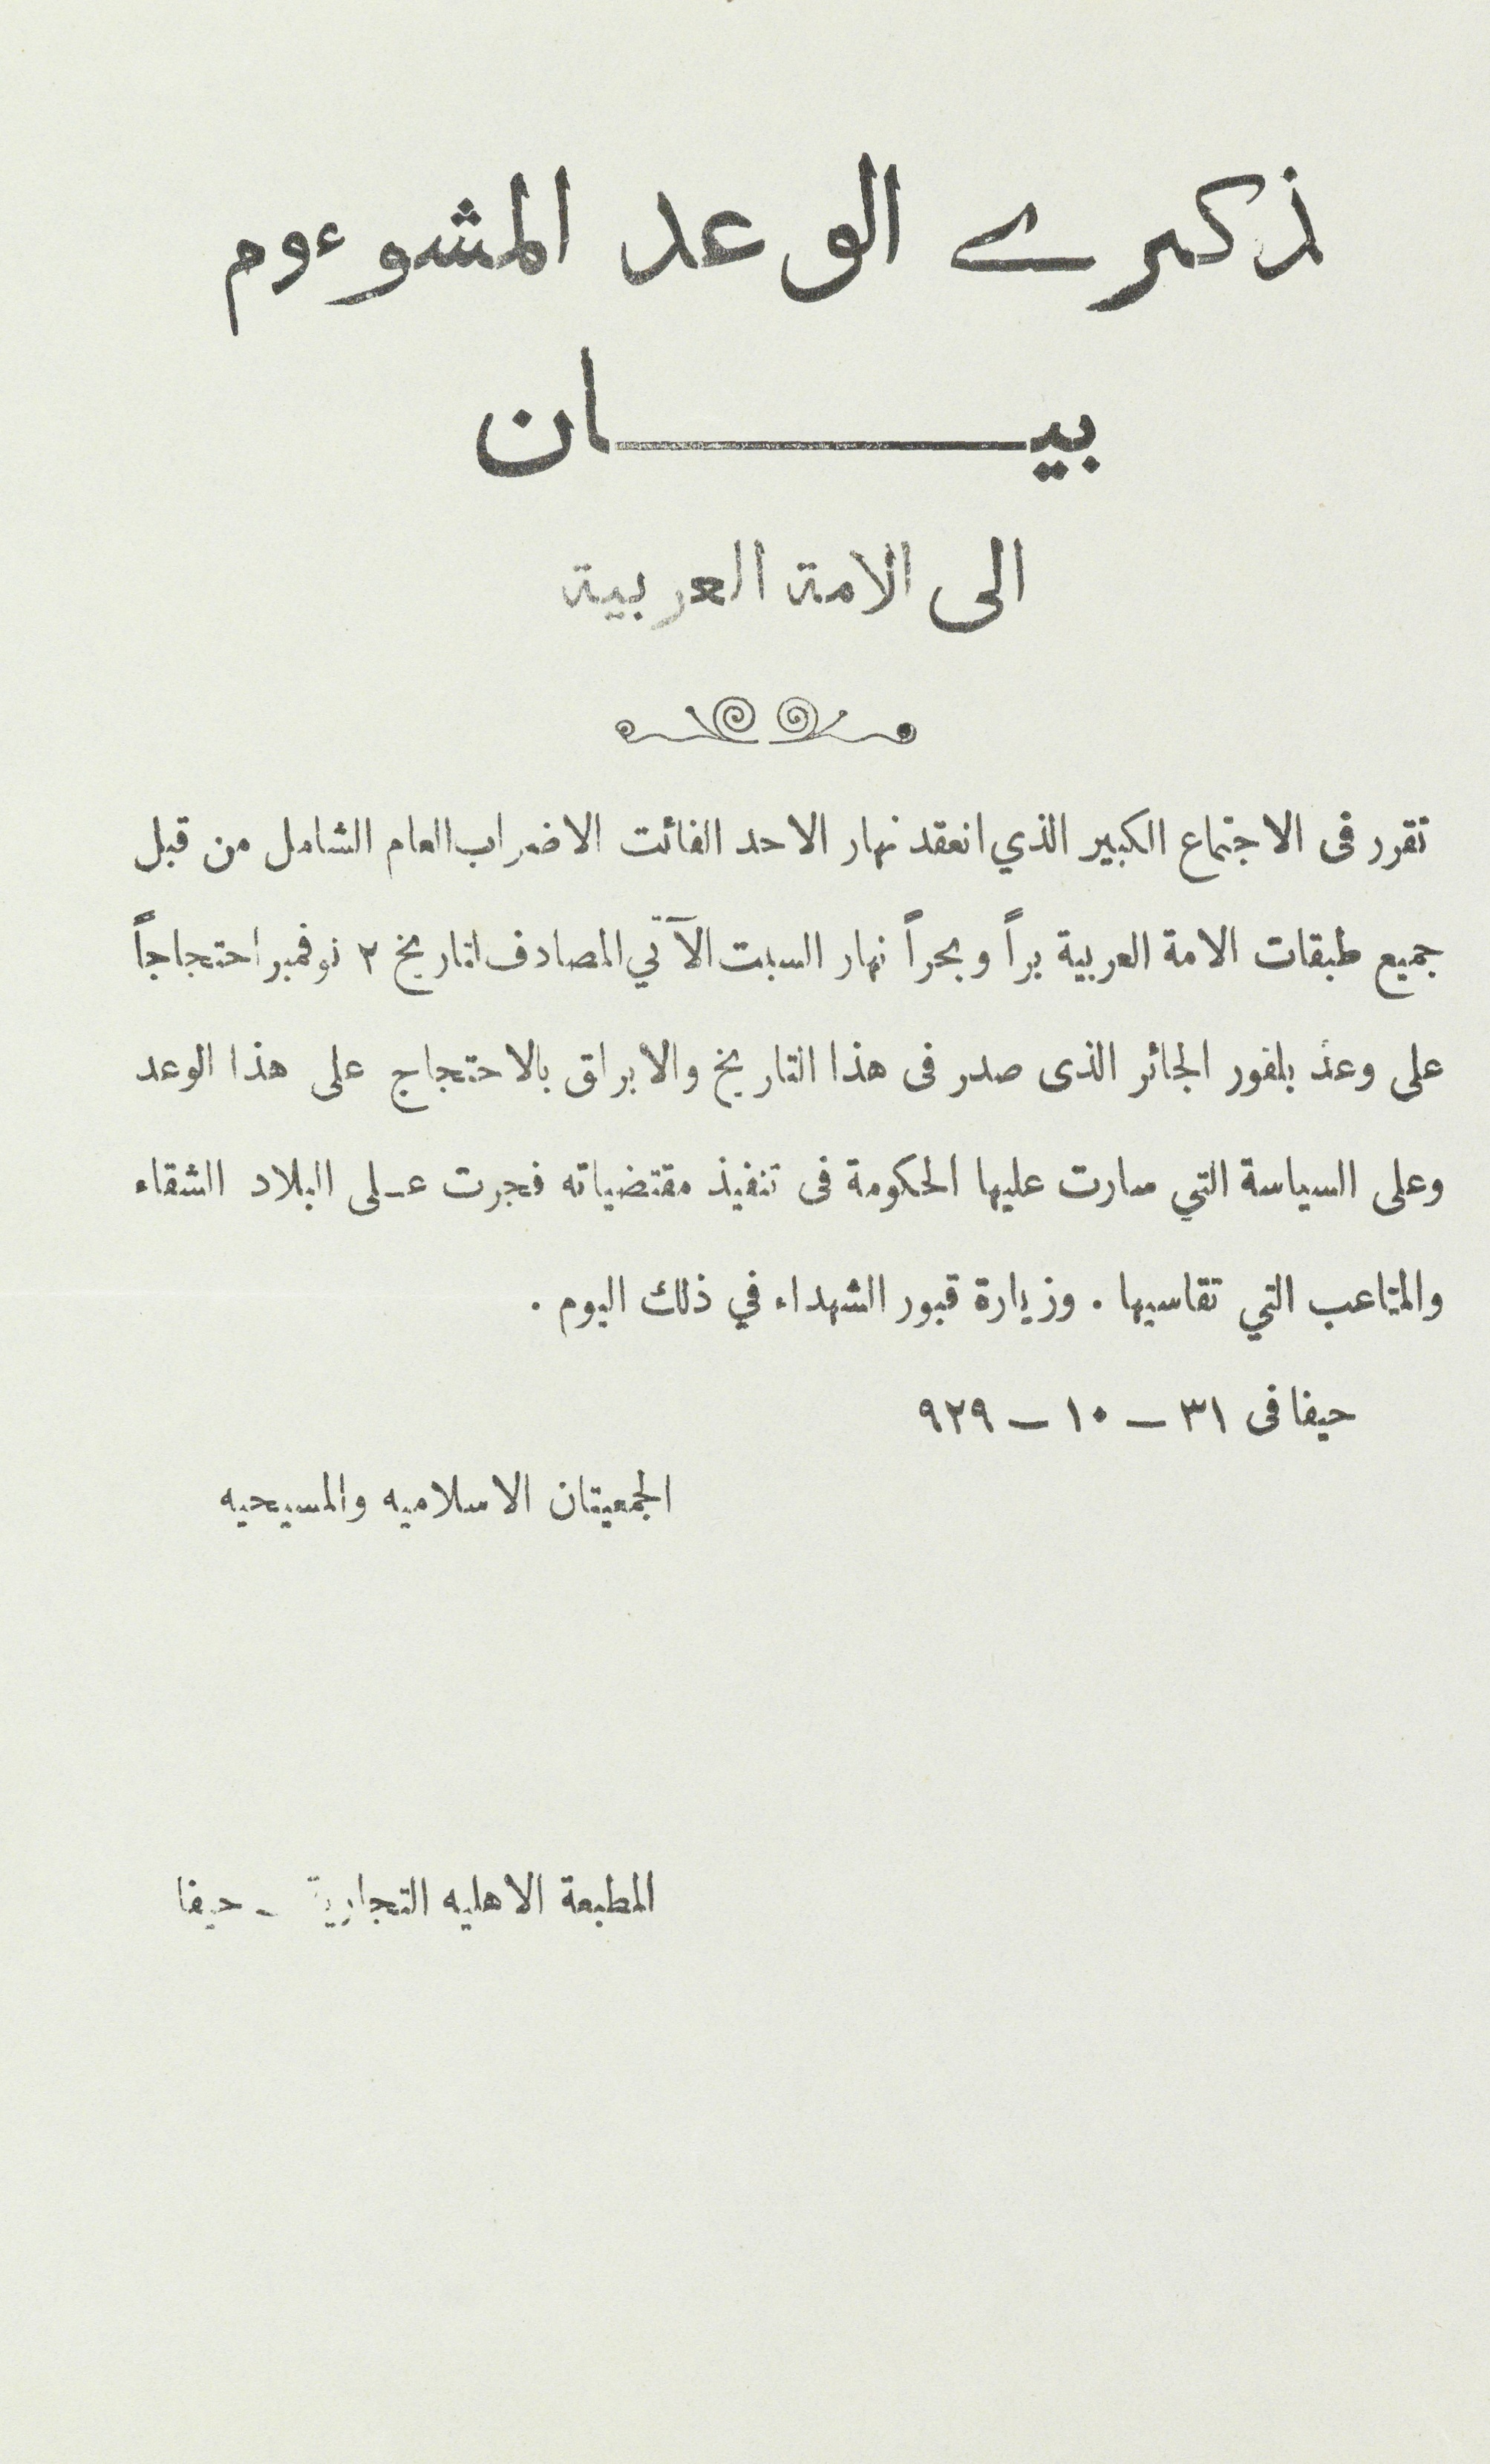 ذكرے الوعد المشوءوم
بيـــــــان
الى الامة العربية
تقرر فى الاجتماع الكبير الذي انعقد نهار الاحد الفائت الاضراب العام الشامل من قبل
جميع طبقات الامة العربية براً وبحراً نهار السبت الآتي المصادف لتاريخ ٢ نوفمبر احتجاجاً
على وعد بلفور الجائر الذى صدر فى هذا التاريخ والابراق بالاحتجاج على هذا الوعد
وعلى السياسة التي سارت عليها الحكومة فى تنفيذ مقتضياته فجرت عـلى البلاد الشقاء
والمتاعب التي تقاسيها . وزيارة قبور الشهداء في ذلك اليوم .
حيفا فى ٣١ ـ ١٠ ـ ٩٢٩
الجمعيتان الاسلاميه والمسيحيه
المطبعة الاهليه التجارية ـ حيفا